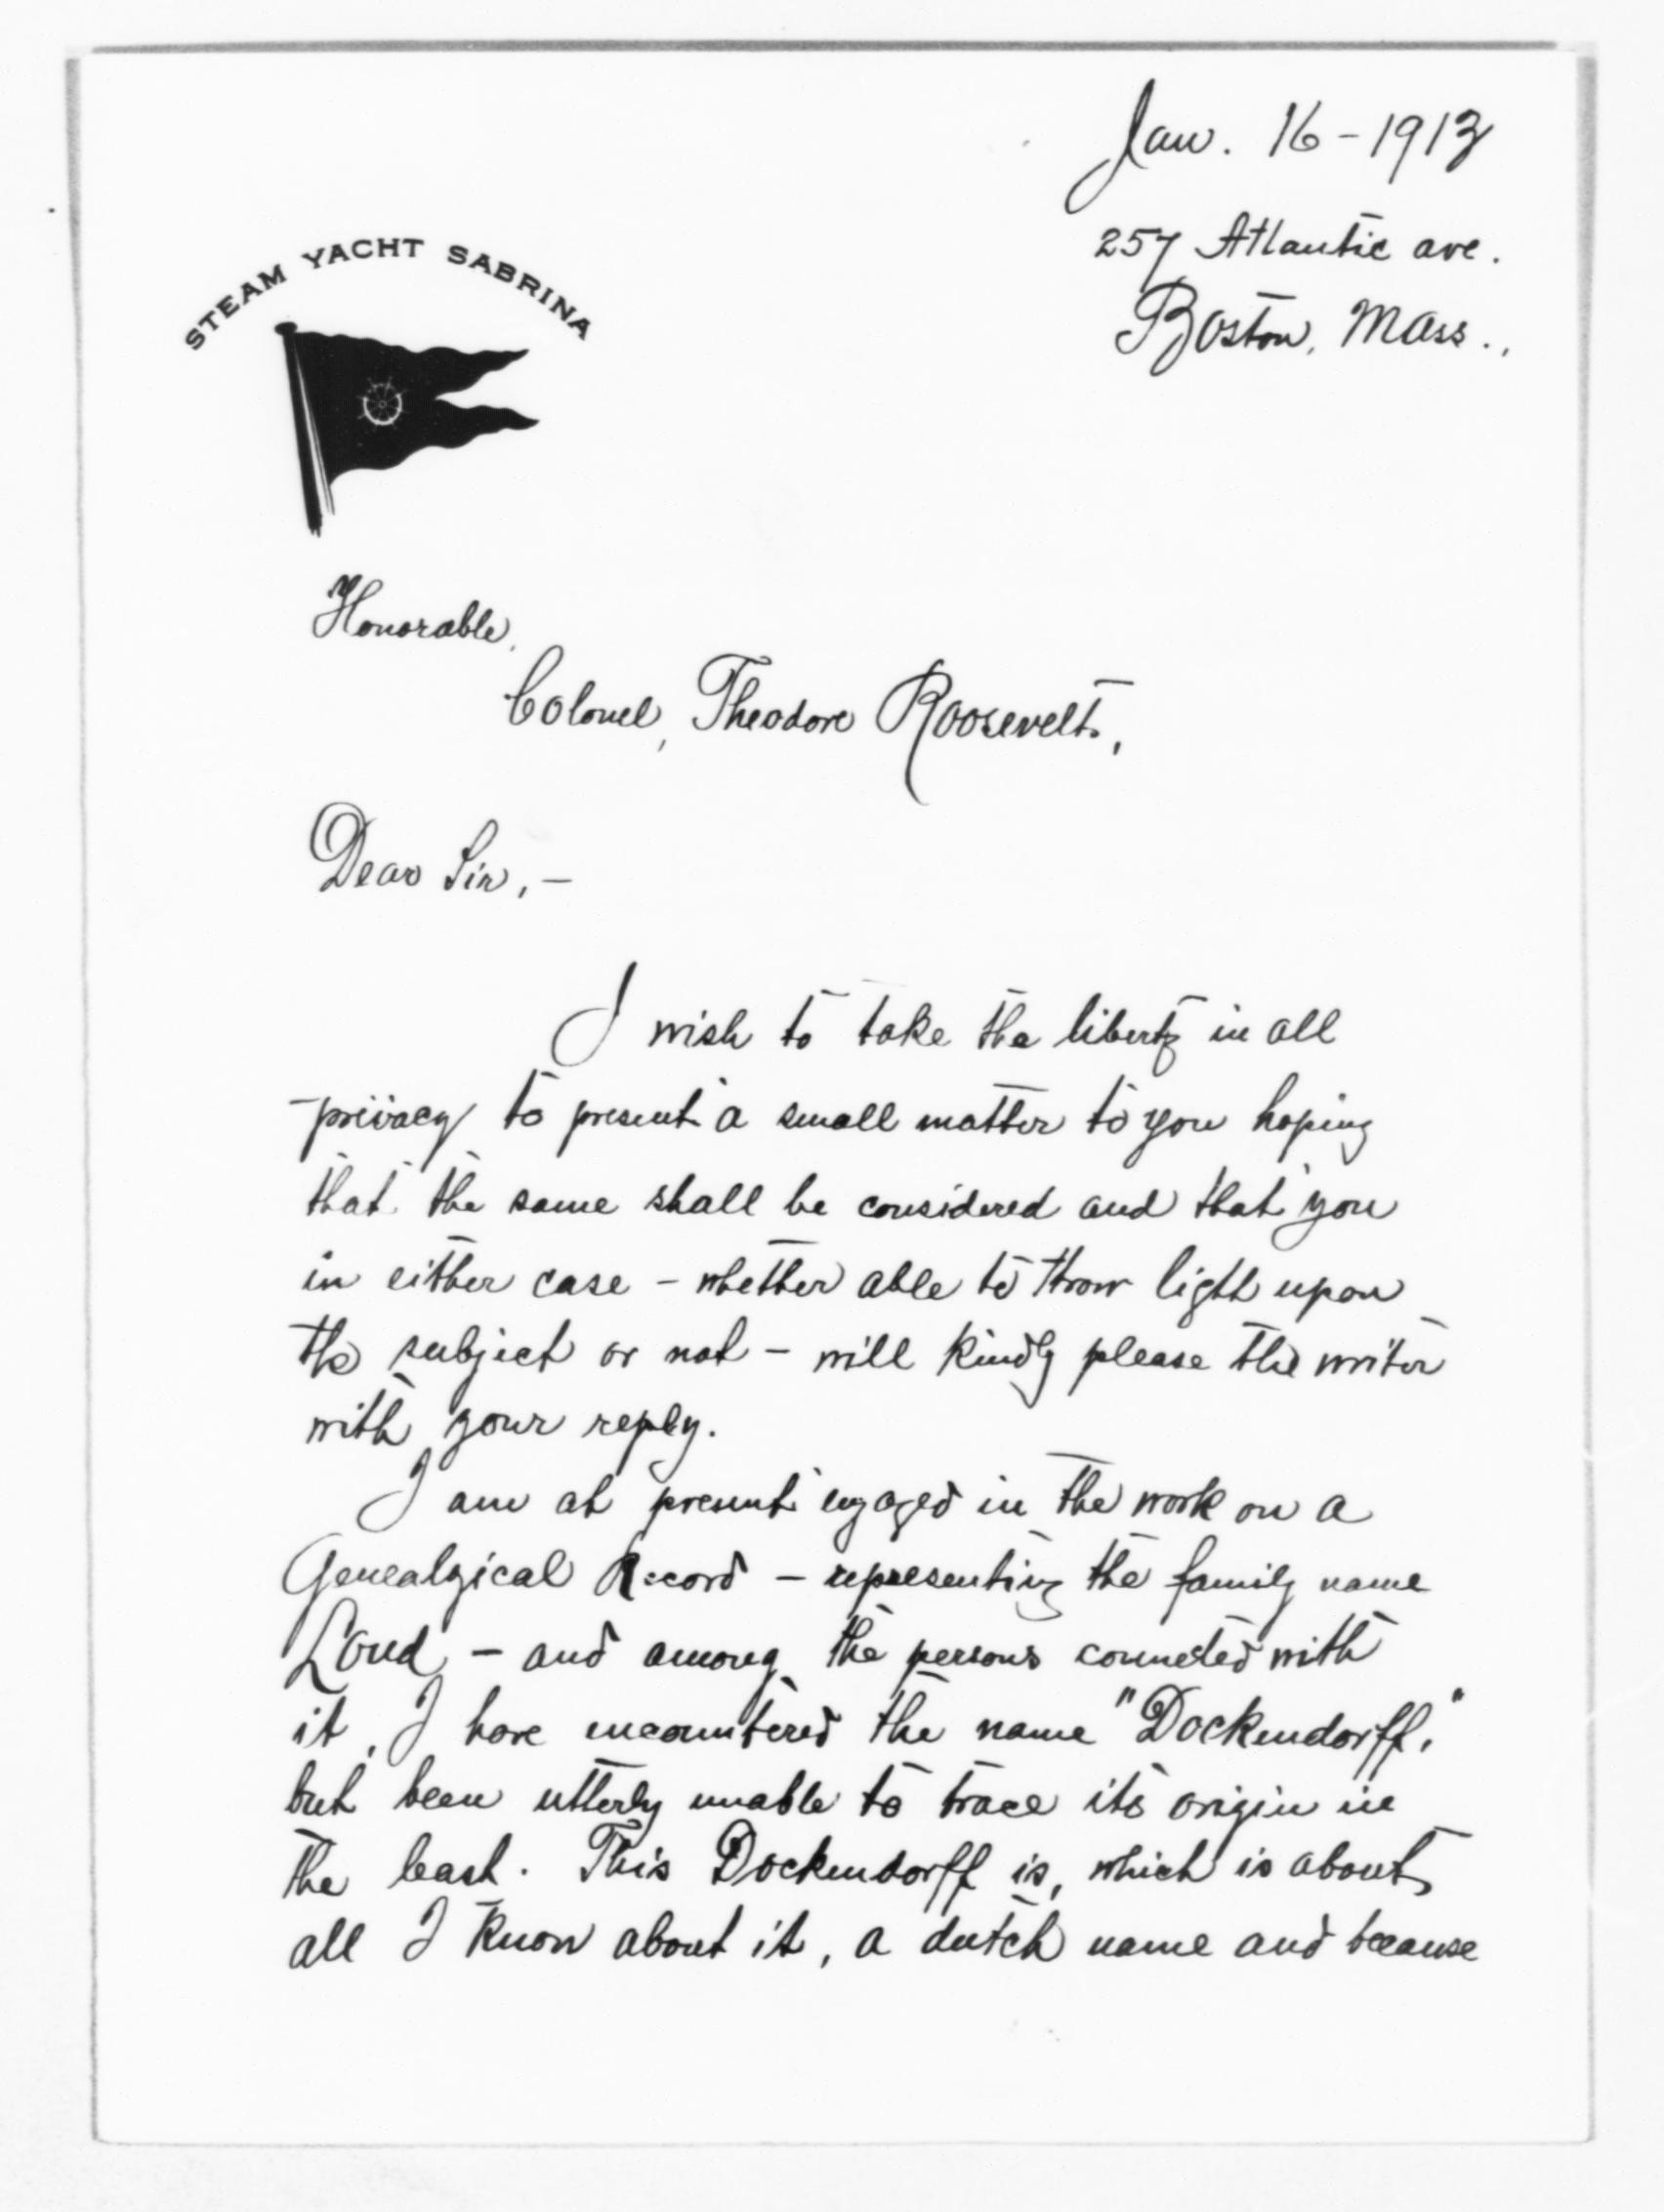 Jan. 16 - 1913
257 Atlantic ave.
Boston, Mass.,
STEAM YACHT SABRINA
Honorable,
Colonel, Theodore Roosevelt,
Dear Sir, -
I wish to take the liberty in all
privacy to present a small matter to you hoping
that the same shall be considered and that you
in either case - whether able to throw light upon
the subject or not - will kindly please the writer
with your reply.
I am at present engaged in the work on a
Genealgical Record - representing the family name
Loud - and among the persons connected with
it, I have encountered the name "Dockendorff,"
but been utterly unable to trace its origin in
the least. This Dockendorff is, which is about
all I know about it, a dutch name and because